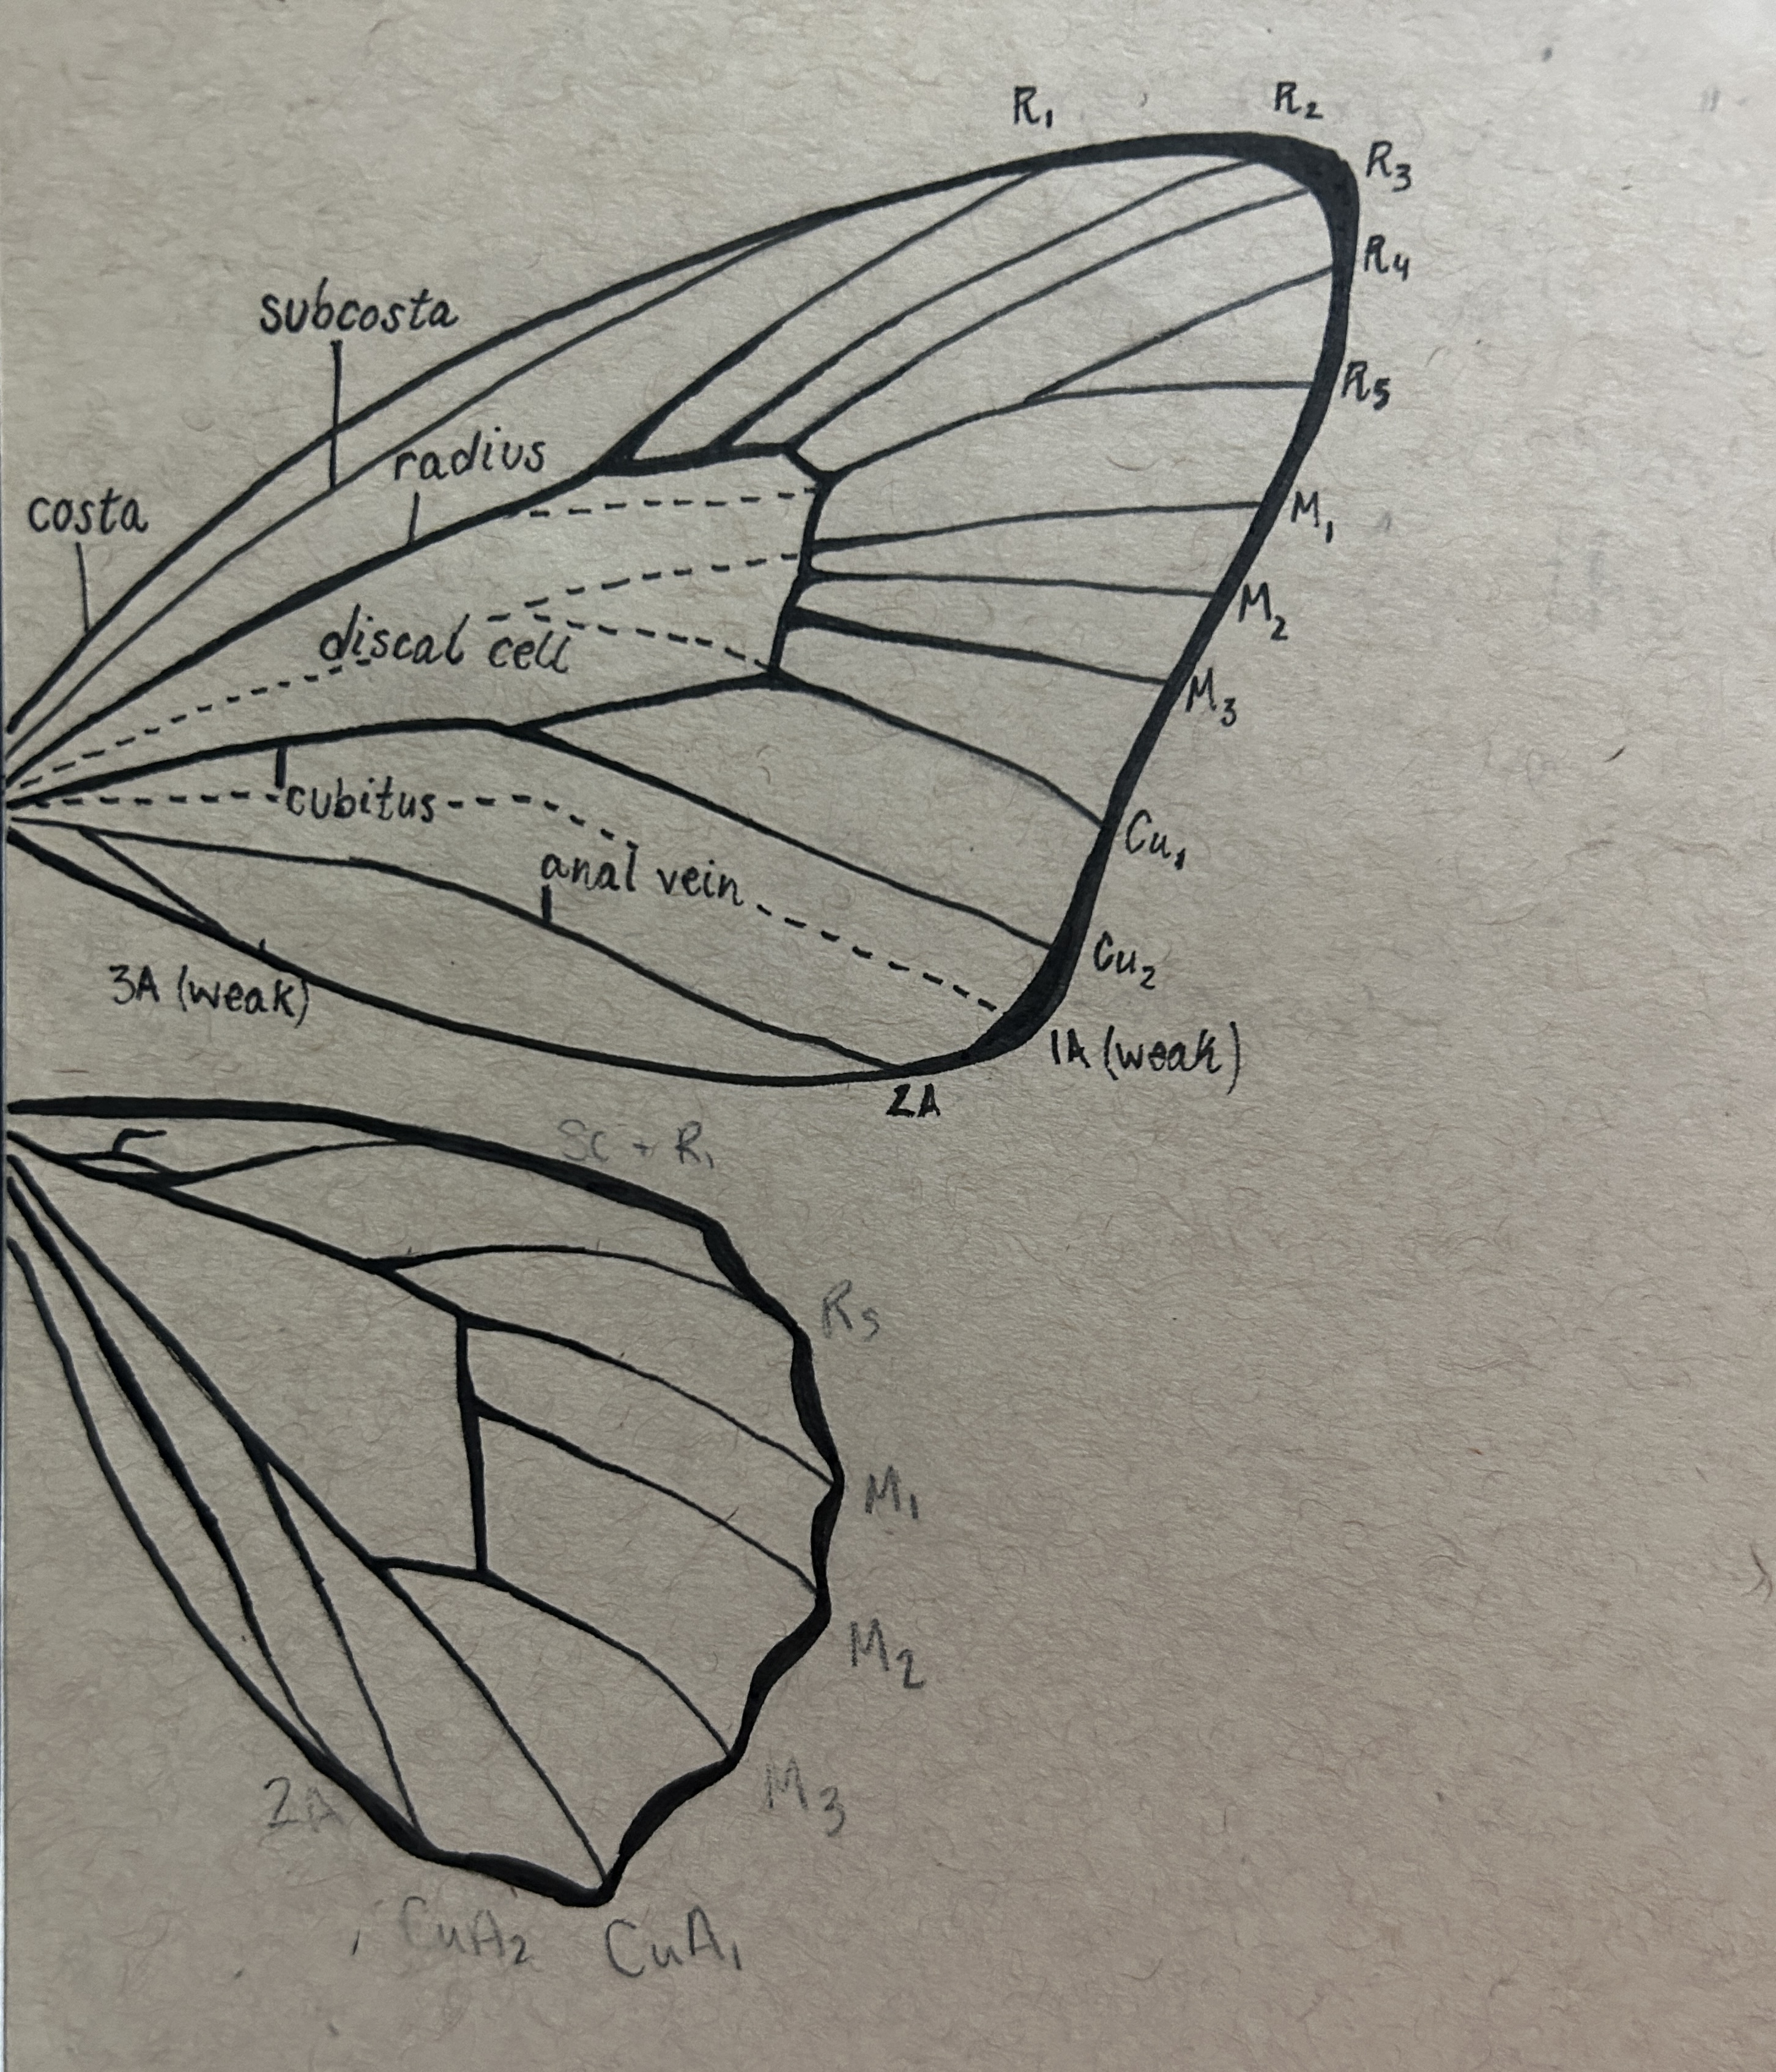 R₁
R₂
R₃
R₄
subcosta
R₅
radius
costa
M₁
M₂
discal cell
M₃
cubitus
Cu₁
anal vein
Cu₂
3A (weak)
1A (weak)
2A
Sc + R₁
Rs
M₁
M₂
M₃
2A
CuA₂
CuA₁